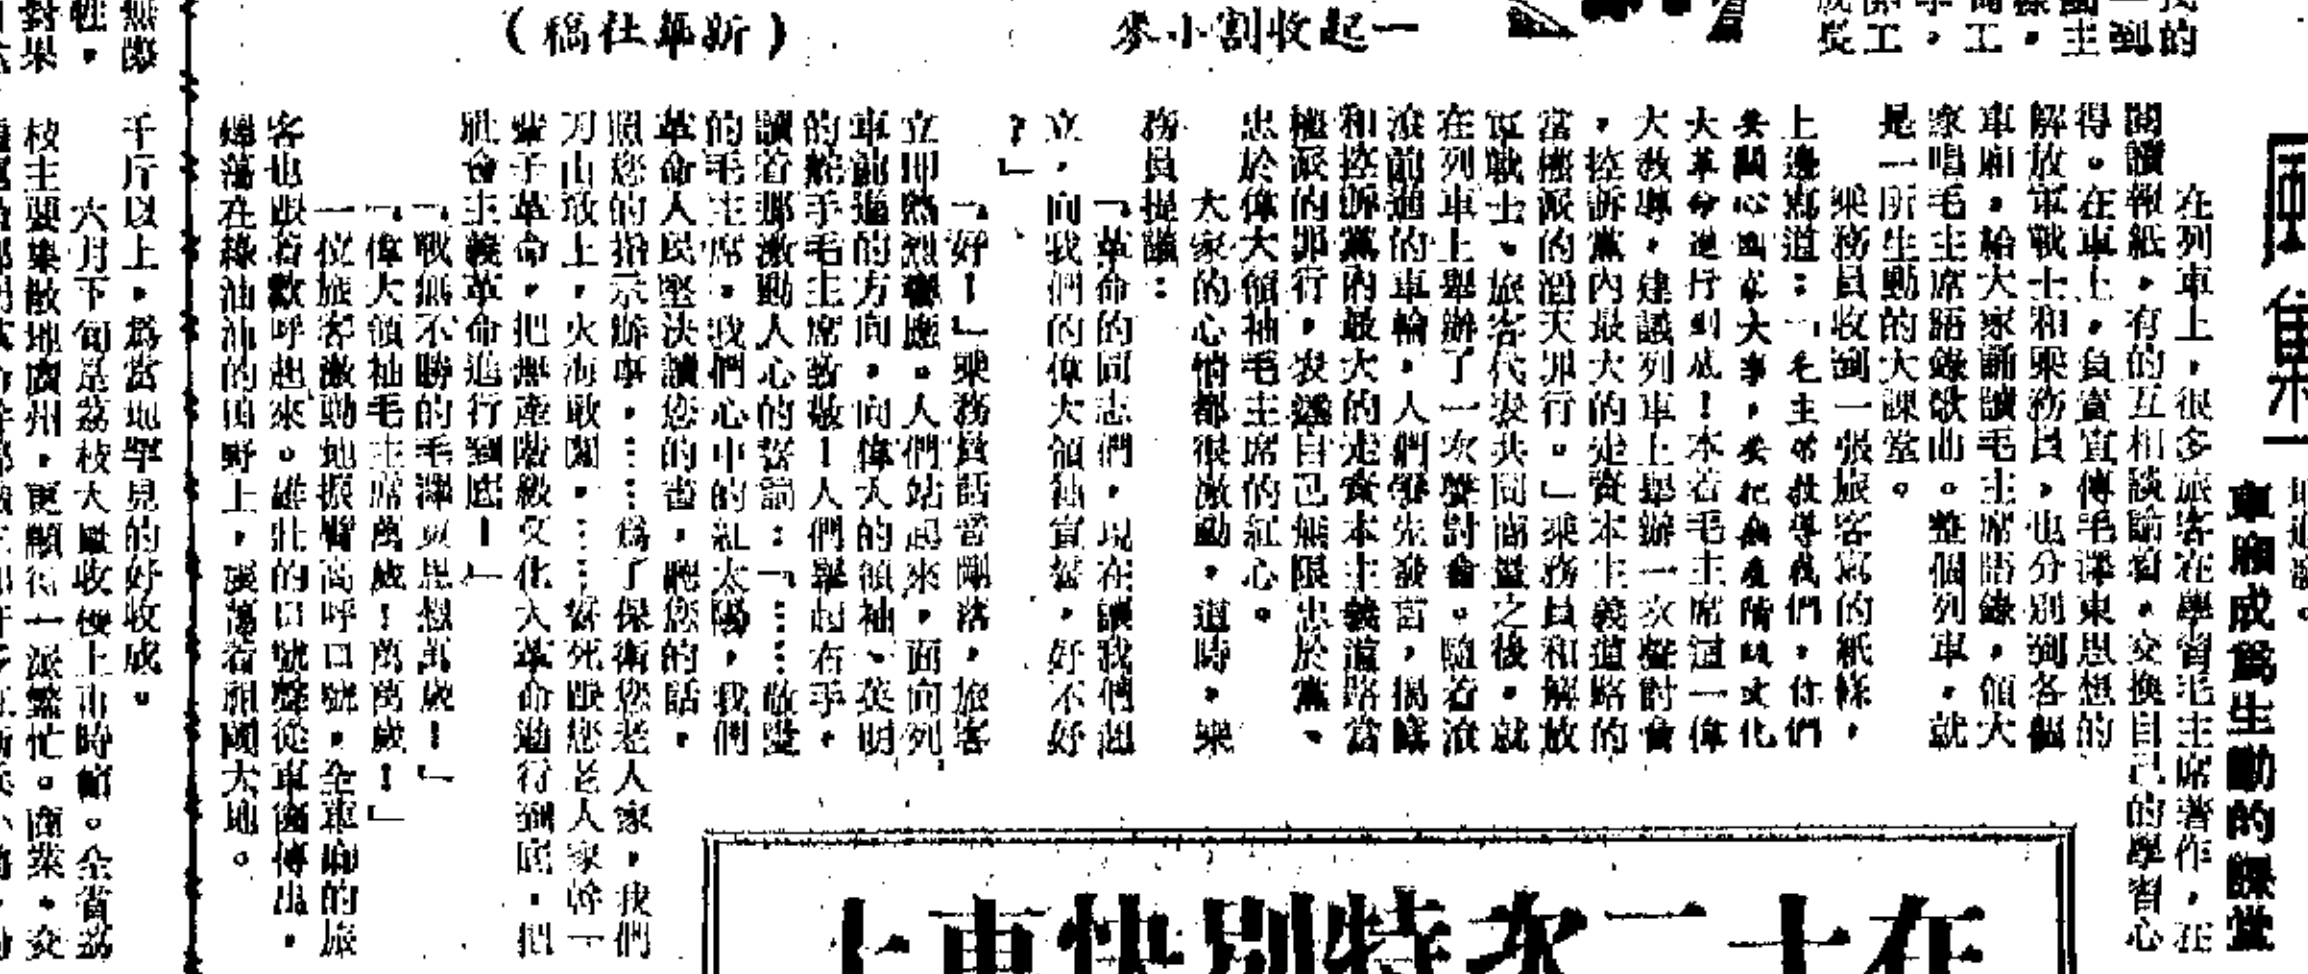 一起收割小麥
(新華社稿)
車廂成爲生動的課堂
在列車上，很多旅客在學習毛主席著作，在
閱讀報紙，有的互相談論着，交換自己的學習心
得。在車上，負責宣傳毛澤東思想的
解放軍戰士和乘務員，也分別到各個
車廂，給大家誦讀毛主席語錄，領大
家唱毛主席語錄歌曲。整個列車，就
是一所生動的大課堂。
乘務員收到一張旅客寫的紙條，
上邊寫道：「毛主席教導我們，你們
要關心國家大事，要把無產階級文化
大革命進行到底！本着毛主席這一偉
大教導，建議列車上舉辦一次聲討會
，控訴黨內最大的走資本主義道路的
當權派的滔天罪行。」乘務員和解放
軍戰士、旅客代表共同商量之後，就
在列車上舉辦了一次聲討會。隨着滾
滾前進的車輪，人們爭先發言，揭露
和控訴黨內最大的走資本主義道路當
權派的罪行，表達自己無限忠於黨、
忠於偉大領袖毛主席的紅心。
大家的心情都很激動，這時，乘
務員提議：
「革命的同志們，現在讓我們起
立，向我們的偉大領袖宣誓，好不好
？」
「好！」乘務員話音剛落，旅客
立即熱烈響應。人們站起來，面向列
車前進的方向，向偉大的領袖、英明
的舵手毛主席致敬！人們舉起右手，
讀着那激動人心的誓詞：「……敬愛
的毛主席，我們心中的紅太陽，我們
革命人民堅決讀您的書，聽您的話，
照您的指示辦事，……爲了保衛您老人家，我們
刀山敢上，火海敢闖，……誓死跟您老人家幹一
輩子革命，把無產階級文化大革命進行到底，把
社會主義革命進行到底！」
「戰無不勝的毛澤東思想萬歲！」
「偉大領袖毛主席萬歲！萬萬歲！」
一位旅客激動地振臂高呼口號，全車廂的旅
客也跟着歡呼起來。雄壯的口號聲從車窗傳出，
飄蕩在綠油油的田野上，震蕩着祖國大地。
千斤以上，爲當地罕見的好收成。
六月下旬是荔枝大量收穫上市時節。全省荔
枝主要集散地廣州，更顯得一派繁忙。商業，交
在十二次特別快車上